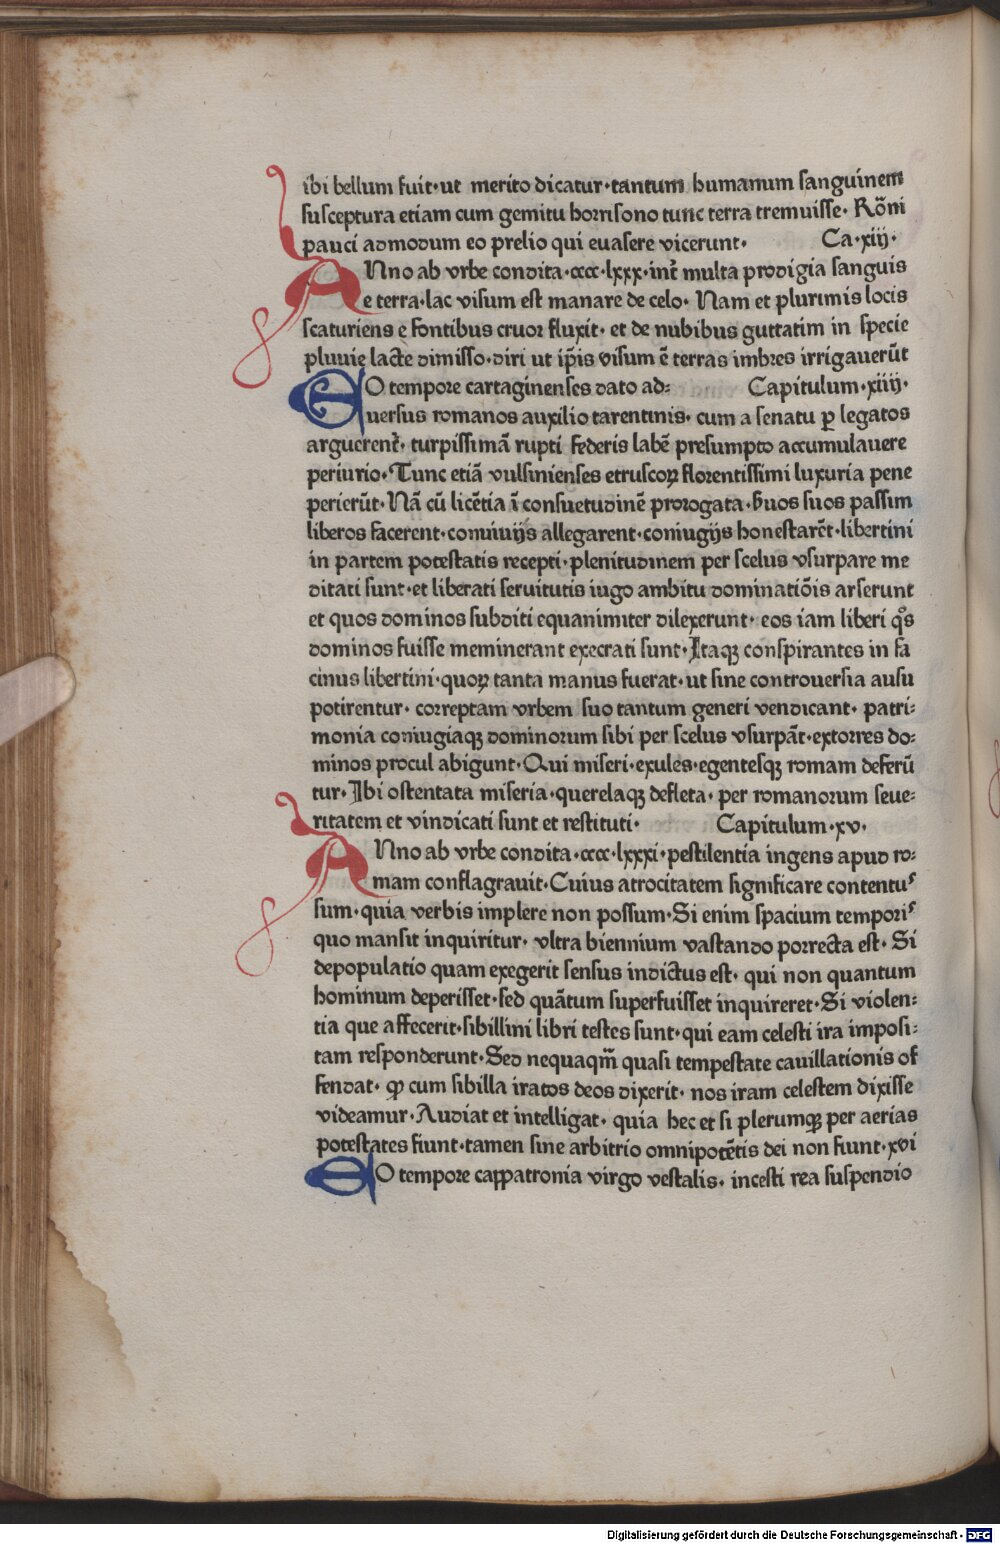 ibi bellum fuit·ut merito dicatur·tantum humanum sanguinem
susceptura etiam cum gemitu horrisono tunc terra tremuisse· Rōni
pauci admodum eo prelio qui evasere vicerunt· Ca·xiij·
ANno ab vrbe condita·cccc·lxxx·int̄ multa prodigia sanguis
e terra·lac visum est manare de celo· Nam et plurimis locis
scaturiens e fontibus cruor fluxit· et de nubibus guttatim in specie
pluuie lacte dimisso·diri ut ip̄is visum ē terras imbres irrigauerūt
EO tempore cartaginenses dato ad: Capitulum·xiiij·
uersus romanos auxilio tarentinis· cum a senatu ꝑ legatos
arguerent̄· turpissimā rupti federis labē presumpto accumulauere
periurio·Tunc etiā vulsinienses etruscoꝝ florentissimi luxuria pene
perierūt·Nā cū licētia ī consuetudinē prorogata·ẜuos suos passim
liberos facerent·conviuijs allegarent·coniugijs honestarēt·libertini
in partem potestatis recepti·plenitudinem per scelus vsurpare me
ditati sunt·et liberati seruitutis iugo ambitu dominatiōis arserunt
et quos dominos subditi equanimiter dilexerunt· eos iam liberi qͦs
dominos fuisse meminerant execrati sunt·Itaqꝫ conspirantes in fa
cinus libertini·quoꝝ tanta manus fuerat·ut sine controuersia ausu
potirentur· correptam vrbem suo tantum generi vendicant· patri:
monia coniugiaqꝫ dominorum sibi per scelus vsurpāt·extorres do:
minos procul abigunt·Qui miseri·exules·egentesqꝫ romam deferū
tur·Ibi ostentata miseria·querelaqꝫ defleta· per romanorum seue:
ritatem et vindicati sunt et restituti· Capitulum·xv·
ANno ab vrbe condita·cccc·lxxxi·pestilentia ingens apud ro:
mam conflagrauit·Cuius atrocitatem significare contentuˢ
sum·quia verbis implere non possum·Si enim spacium temporiˢ
quo mansit inquiritur· vltra biennium vastando porrecta est· Si
depopulatio quam exegerit sensus indictus est· qui non quantum
hominum deperisset·sed quātum superfuisset inquireret·Si violen:
tia que affecerit·sibillini libri testes sunt·qui eam celesti ira imposi:
tam responderunt·Sed nequaqm̄ quasi tempestate cauillationis of
fendat· ꝙ cum sibilla iratos deos dixerit· nos iram celestem dixisse
videamur·Audiat et intelligat· quia hec et si plerumqꝫ per aerias
potestates fiunt·tamen sine arbitrio omnipotētis dei non fiunt·xvi
EO tempore cappatronia virgo vestalis· incesti rea suspendio
Digitalisierung gefördert durch die Deutsche Forschungsgemeinschaft - DFG